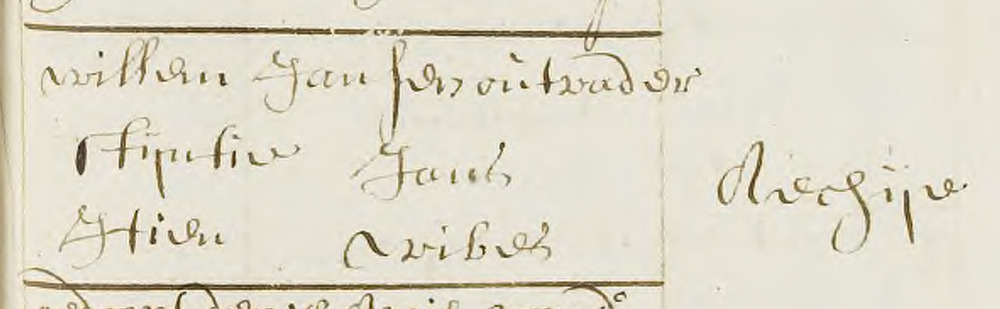 willem Jansen outvader
stijntie Jans
Stien wibes
Aechije